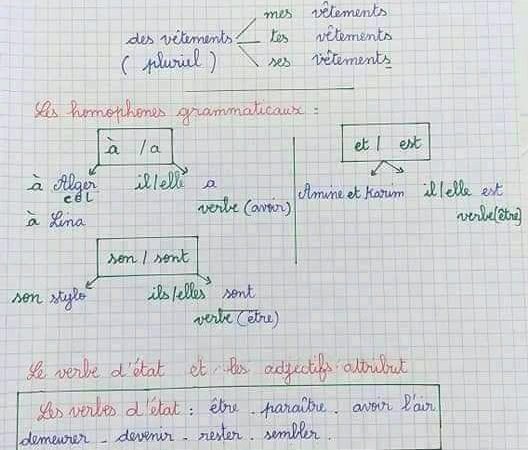 mes vêtements
des vêtements tes vêtements
( pluriel ) ses vêtements
Les homophones grammaticaux :
à / a et / est
à Alger il/elle a Amine et Karim il/elle est
CDL verbe (avoir) verbe (être)
à Lina
son / sont
son stylo ils/elles sont
verbe (être)
Le verbe d'état et les adjectifs attribut
Les verbes d'état : être . paraître . avoir l'air
demeurer - devenir - rester . sembler .